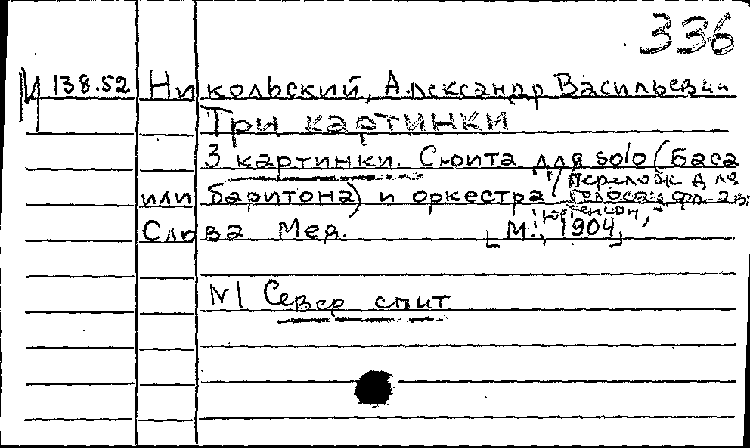 336
М 138.52 Никольский, Александр Васильевич
Три картинки
3 картинки. Сюита для solo (баса
или баритона) и оркестра / Перелож. для
голоса и фп.
Слова Мея. [М.: Юргенсон, 1904]
№1 Север спит